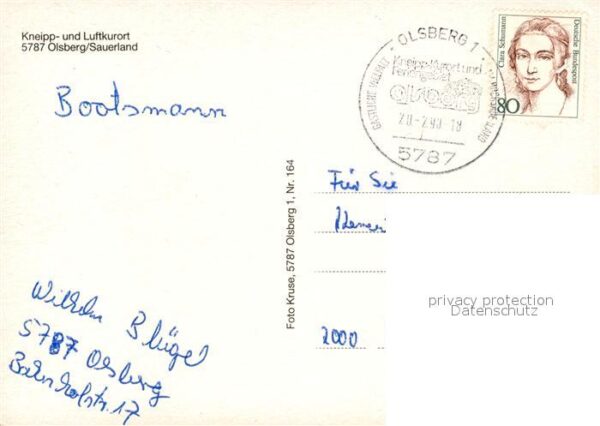 Kneipp- und Luftkurort
5787 Olsberg/Sauerland
Bootsmann
OLSBERG 1
Kneipp-Kurort und
20.-2.90-18
5787
Clara Schumann
Deutsche Bundespost
80
Foto Kruse, 5787 Olsberg 1, Nr. 164
Für Sie
2000
privacy protection
Datenschutz
Wilhelm Blügel
5787 Olsberg
Bahnhofstr. 17